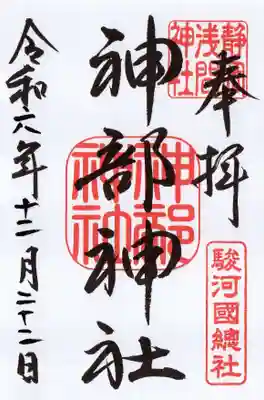 奉拝
静岡浅間神社
駿河國總社
神部神社
神部神社
令和六年十二月二十二日